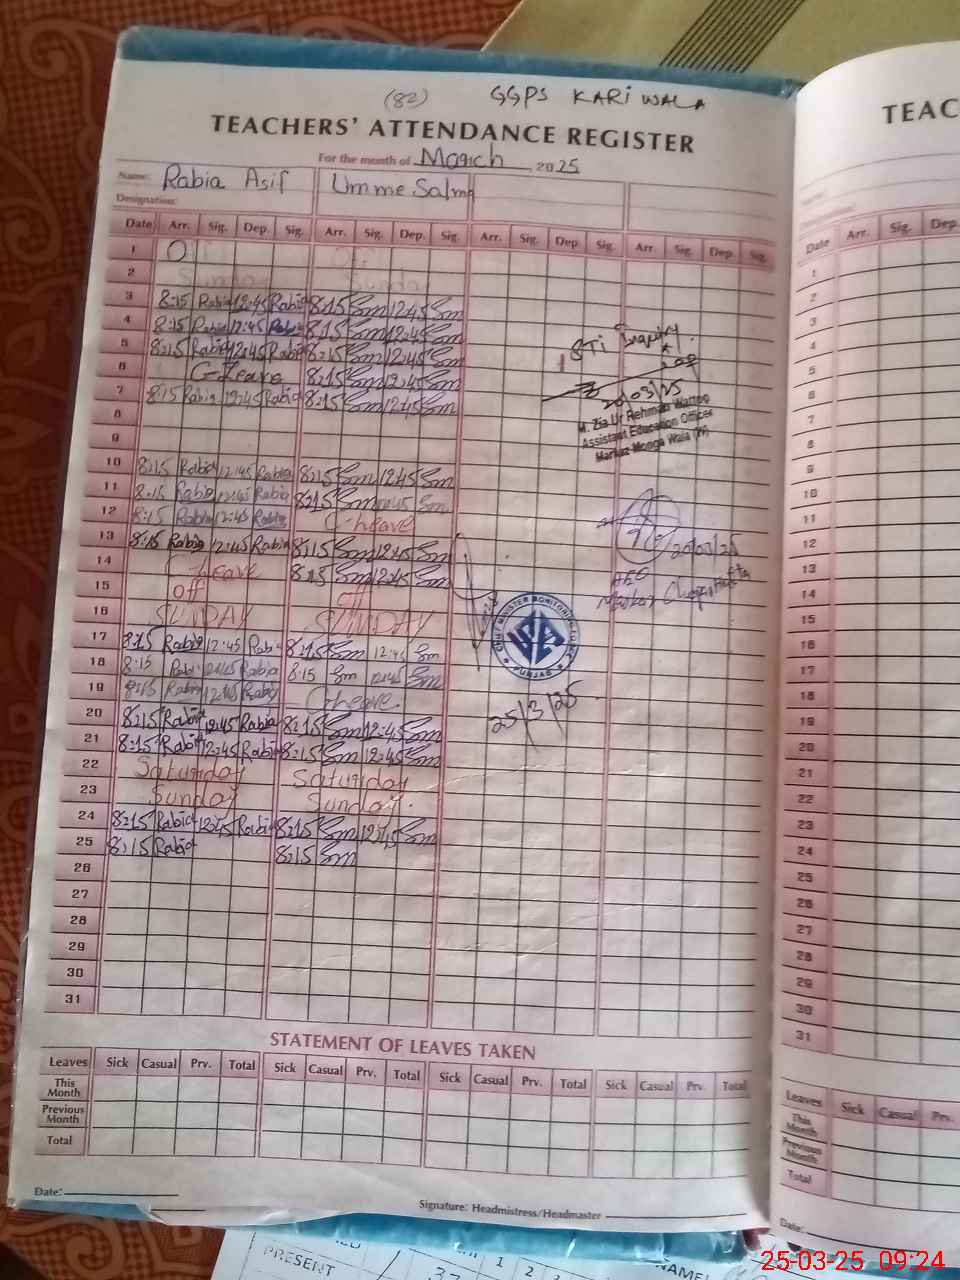 (82) GGPS KARI WALA
TEACHERS' ATTENDANCE REGISTER
For the month of March, 2025
Name: Rabia Asif Umme Salma
Designation:
Date Arr. Sig. Dep. Sig. Arr. Sig. Dep. Sig. Arr. Sig. Dep Sig. Arr. Sig. Dep. Sig.
1 Off
2 Sunday Sunday
3 8:15 Rabia 12:45 Rabia 8:15 Sm 12:45 Sm
4 8:15 Rabia 12:45 Rabia 8:15 Sm 12:45 Sm
5 8:15 Rabia 12:45 Rabia 8:15 Sm 12:45 Sm
6 C-Leave 8:15 Sm 12:45 Sm
7 8:15 Rabia 12:45 Rabia 8:15 Sm 12:45 Sm
8
9
10 8:15 Rabia 12:45 Rabia 8:15 Sm 12:45 Sm
11 8:15 Rabia 12:45 Rabia 8:15 Sm 12:45 Sm
12 8:15 Rabia 12:45 Rabia C-Leave
13 8:15 Rabia 12:45 Rabia 8:15 Sm 12:45 Sm
14 C-Leave 8:15 Sm 12:45 Sm
15 Off Off
16 SUNDAY SUNDAY
17 8:15 Rabia 12:45 Rabia 8:15 Sm 12:45 Sm
18 8:15 Rabia 12:45 Rabia 8:15 Sm 12:45 Sm
19 8:15 Rabia 12:45 Rabia C-Leave
20 8:15 Rabia 12:45 Rabia 8:15 Sm 12:45 Sm
21 8:15 Rabia 12:45 Rabia 8:15 Sm 12:45 Sm
22 Saturday Saturday
23 Sunday Sunday.
24 8:15 Rabia 12:45 Rabia 8:15 Sm 12:45 Sm
25 8:15 Rabia 8:15 Sm
26
27
28
29
30
31
STI Inquiry
20/03/25
M. Zia Ur Rehman Wattoo
Assistant Education Officer
Markaz Monga Wala (W)
20/03/25
AEO
Markaz
CHIEF MINISTER MONITORING FORCE
PUNJAB
25/3/25
STATEMENT OF LEAVES TAKEN
Leaves Sick Casual Prv. Total Sick Casual Prv. Total Sick Casual Prv. Total Sick Casual Prv. Total
This Month
Previous Month
Total
Date:
Signature: Headmistress/Headmaster
TEAC
Date Arr. Sig. Dep.
1
2
3
4
5
6
7
8
9
10
11
12
13
14
15
16
17
18
19
20
21
22
23
24
25
26
27
28
29
30
31
Leaves Sick Casual Prv.
This Month
Previous Month
Total
Date:
PRESENT
37
1 2
NAME
25-03-25 09:24